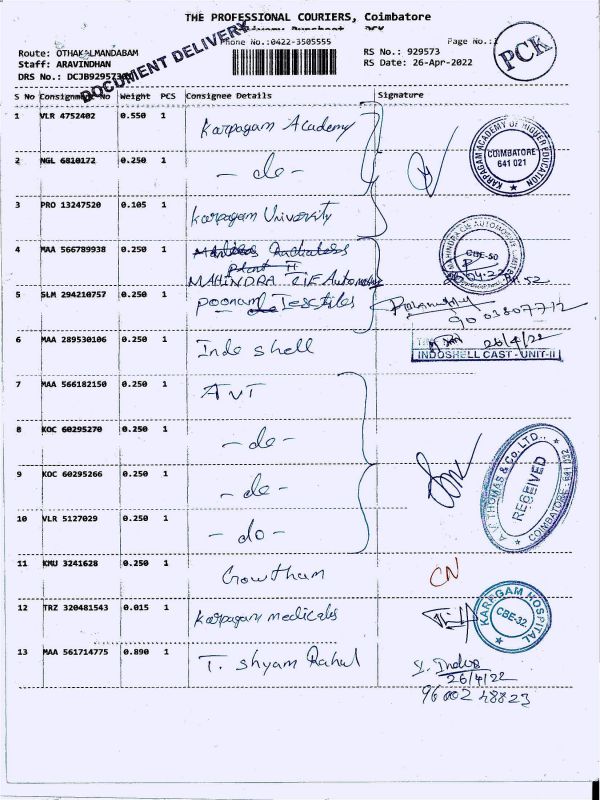 THE PROFESSIONAL COURIERS, Coimbatore
Delivery Runsheet PCK
Phone No.:0422-3505555
Page No.:1
PCK
Route: OTHAKALMANDABAM
RS No.: 929573
Staff: ARAVINDHAN
RS Date: 26-Apr-2022
DRS No.: DCJB929573
DOCUMENT DELIVERY
S No Consignment No Weight PCS Consignee Details Signature
1 VLR 4752402 0.550 1 Karpagam Academy
KARPAGAM ACADEMY OF HIGHER EDUCATION
COIMBATORE
641 021
2 NGL 6810172 0.250 1 - do -
3 PRO 13247520 0.105 1 Karpagam University
4 MAA 566789938 0.250 1
MAHINDRA CIE Automotive
MAHINDRA CIE AUTOMOTIVE
CBE-50
5 SLM 294210757 0.250 1 Poonam Texstiles
9003807712
6 MAA 289530106 0.250 1 Indo shell
26/4/22
INDOSHELL CAST - UNIT-II
7 MAA 566182150 0.250 1 AVT
8 KOC 60295270 0.250 1 - do -
9 KOC 60295266 0.250 1 - do -
A.V. THOMAS & Co. LTD.,
RECEIVED
COIMBATORE - 641 032
10 VLR 5127029 0.250 1 - do -
11 KMU 3241628 0.250 1 Gowtham CN
12 TRZ 320481543 0.015 1 Karpagam medicals
KARPAGAM HOSPITAL
CBE-32.
13 MAA 561714775 0.890 1 T. Shyam Rahul
26/4/22
9600248823